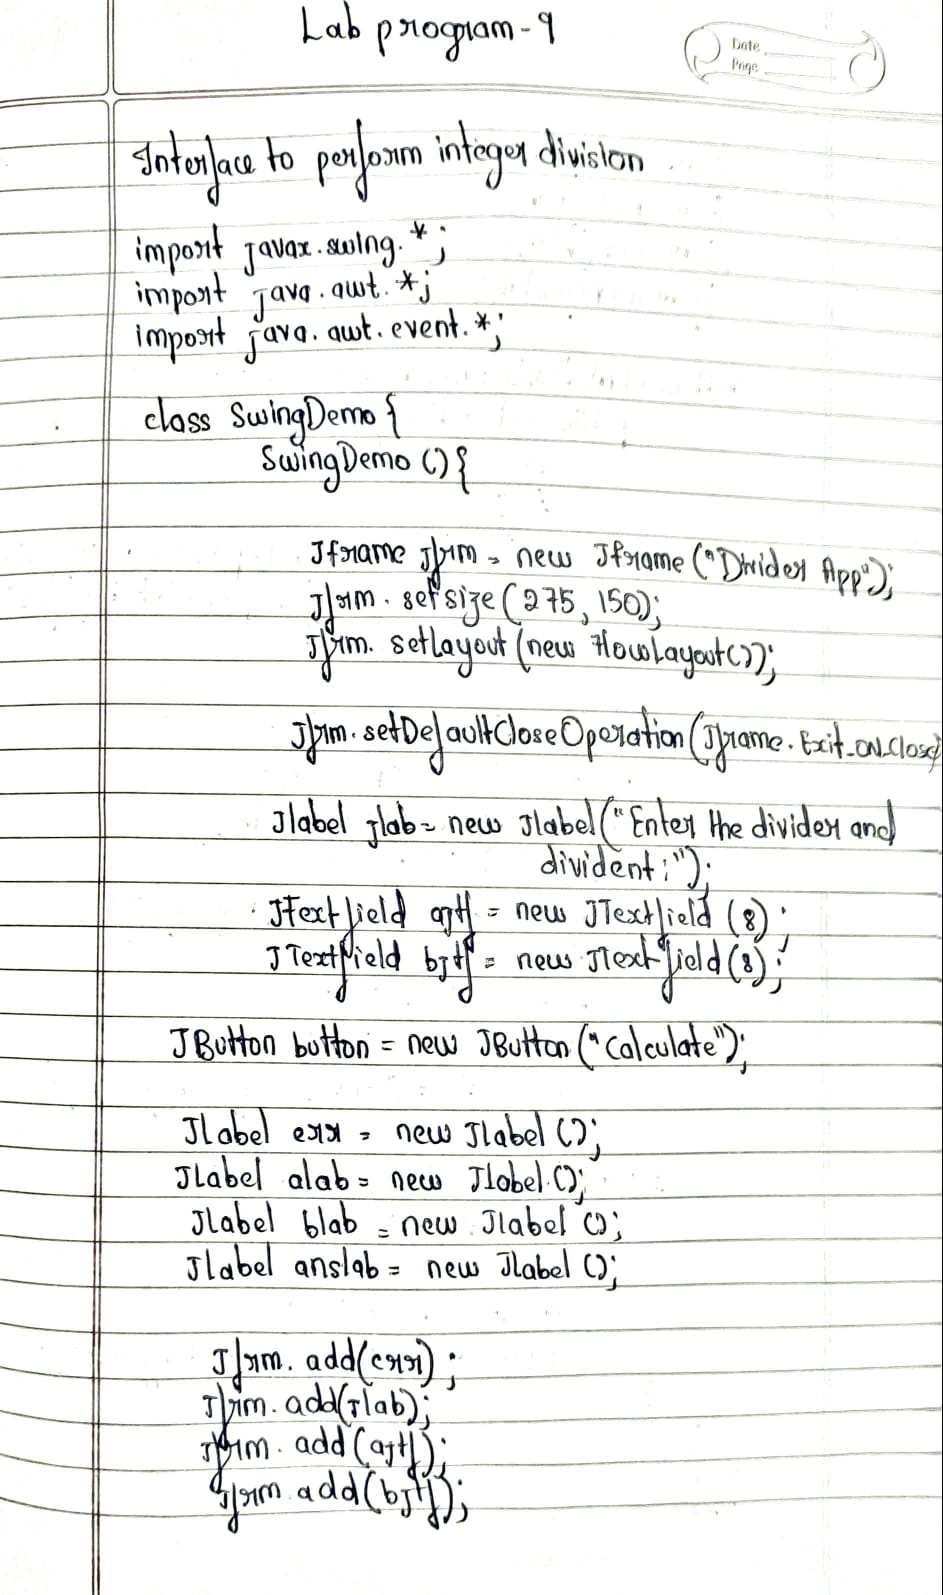 Lab program-9
Date
Page
Interface to perform integer division
import javax.swing.*;
import java.awt.*;
import java.awt.event.*;
class SwingDemo {
SwingDemo () {
Jframe jfrm = new Jframe ("Divider App");
Jfrm. setsize (275, 150);
Jfrm. setLayout (new FlowLayout());
Jfrm. setDefaultCloseOperation (Jframe. Exit_ON_Close)
Jlabel jlab = new Jlabel ("Enter the divider and
divident:");
JTextfield ajtf = new JTextfield (8);
JTextfield bjtf = new JTextfield (8);
JButton button = new JButton ("Calculate");
JLabel err = new Jlabel ();
JLabel alab = new Jlabel ();
Jlabel blab = new Jlabel ();
Jlabel anslab = new Jlabel ();
Jfrm. add(err);
Jfrm. add(jlab);
Jfrm. add (ajtf);
Jfrm. add (bjtf);